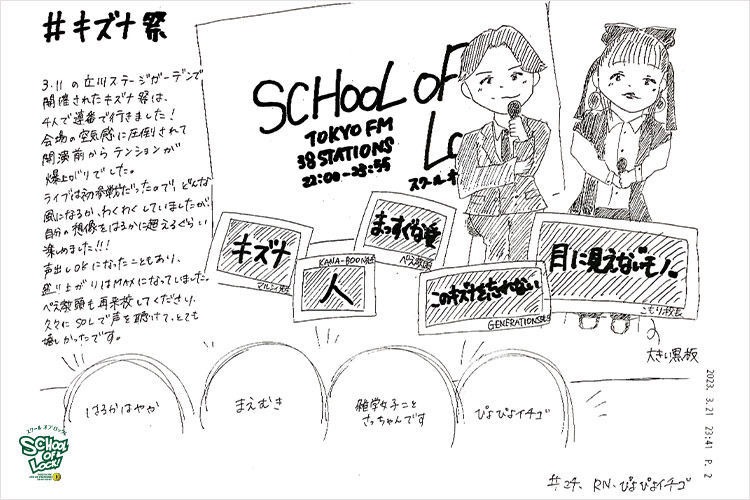 #キズナ祭
3.11の立川ステージガーデンで
開催されたキズナ祭は、
4人で連番で行きました!
会場の空気感に圧倒されて
開演前からテンションが
爆上がりでした。
ライブは初参戦だったので、どんな
風になるか、わくわくしていましたが
自分の想像をはるかに超えるぐらい
楽しめました!!!
声出しOKになったこともあり、
盛り上がりはMAXになっていました。
ぺえ教頭も再来校してくださり、
久々にSOLで声を聴けて、とても
嬉しかったです。
SCHOOL OF
Lo
TOKYO FM
38 STATIONS
22:00-23:55
スクールオ
キズナ
KANA-BOON
人
まっすぐな愛
ぺえ教頭
このキズナを忘れない
GENERATIONS
目に見えないモノ
こもり校長
大きい黒板
はるかはやか
まえむき
雑学女子こと
さっちゃんです
ぴよぴよイチゴ
スクールオブロック!
SCHOOL
OF
LOCK!
2023. 3.21 23:41 P. 2
RN. ぴよぴよイチゴ